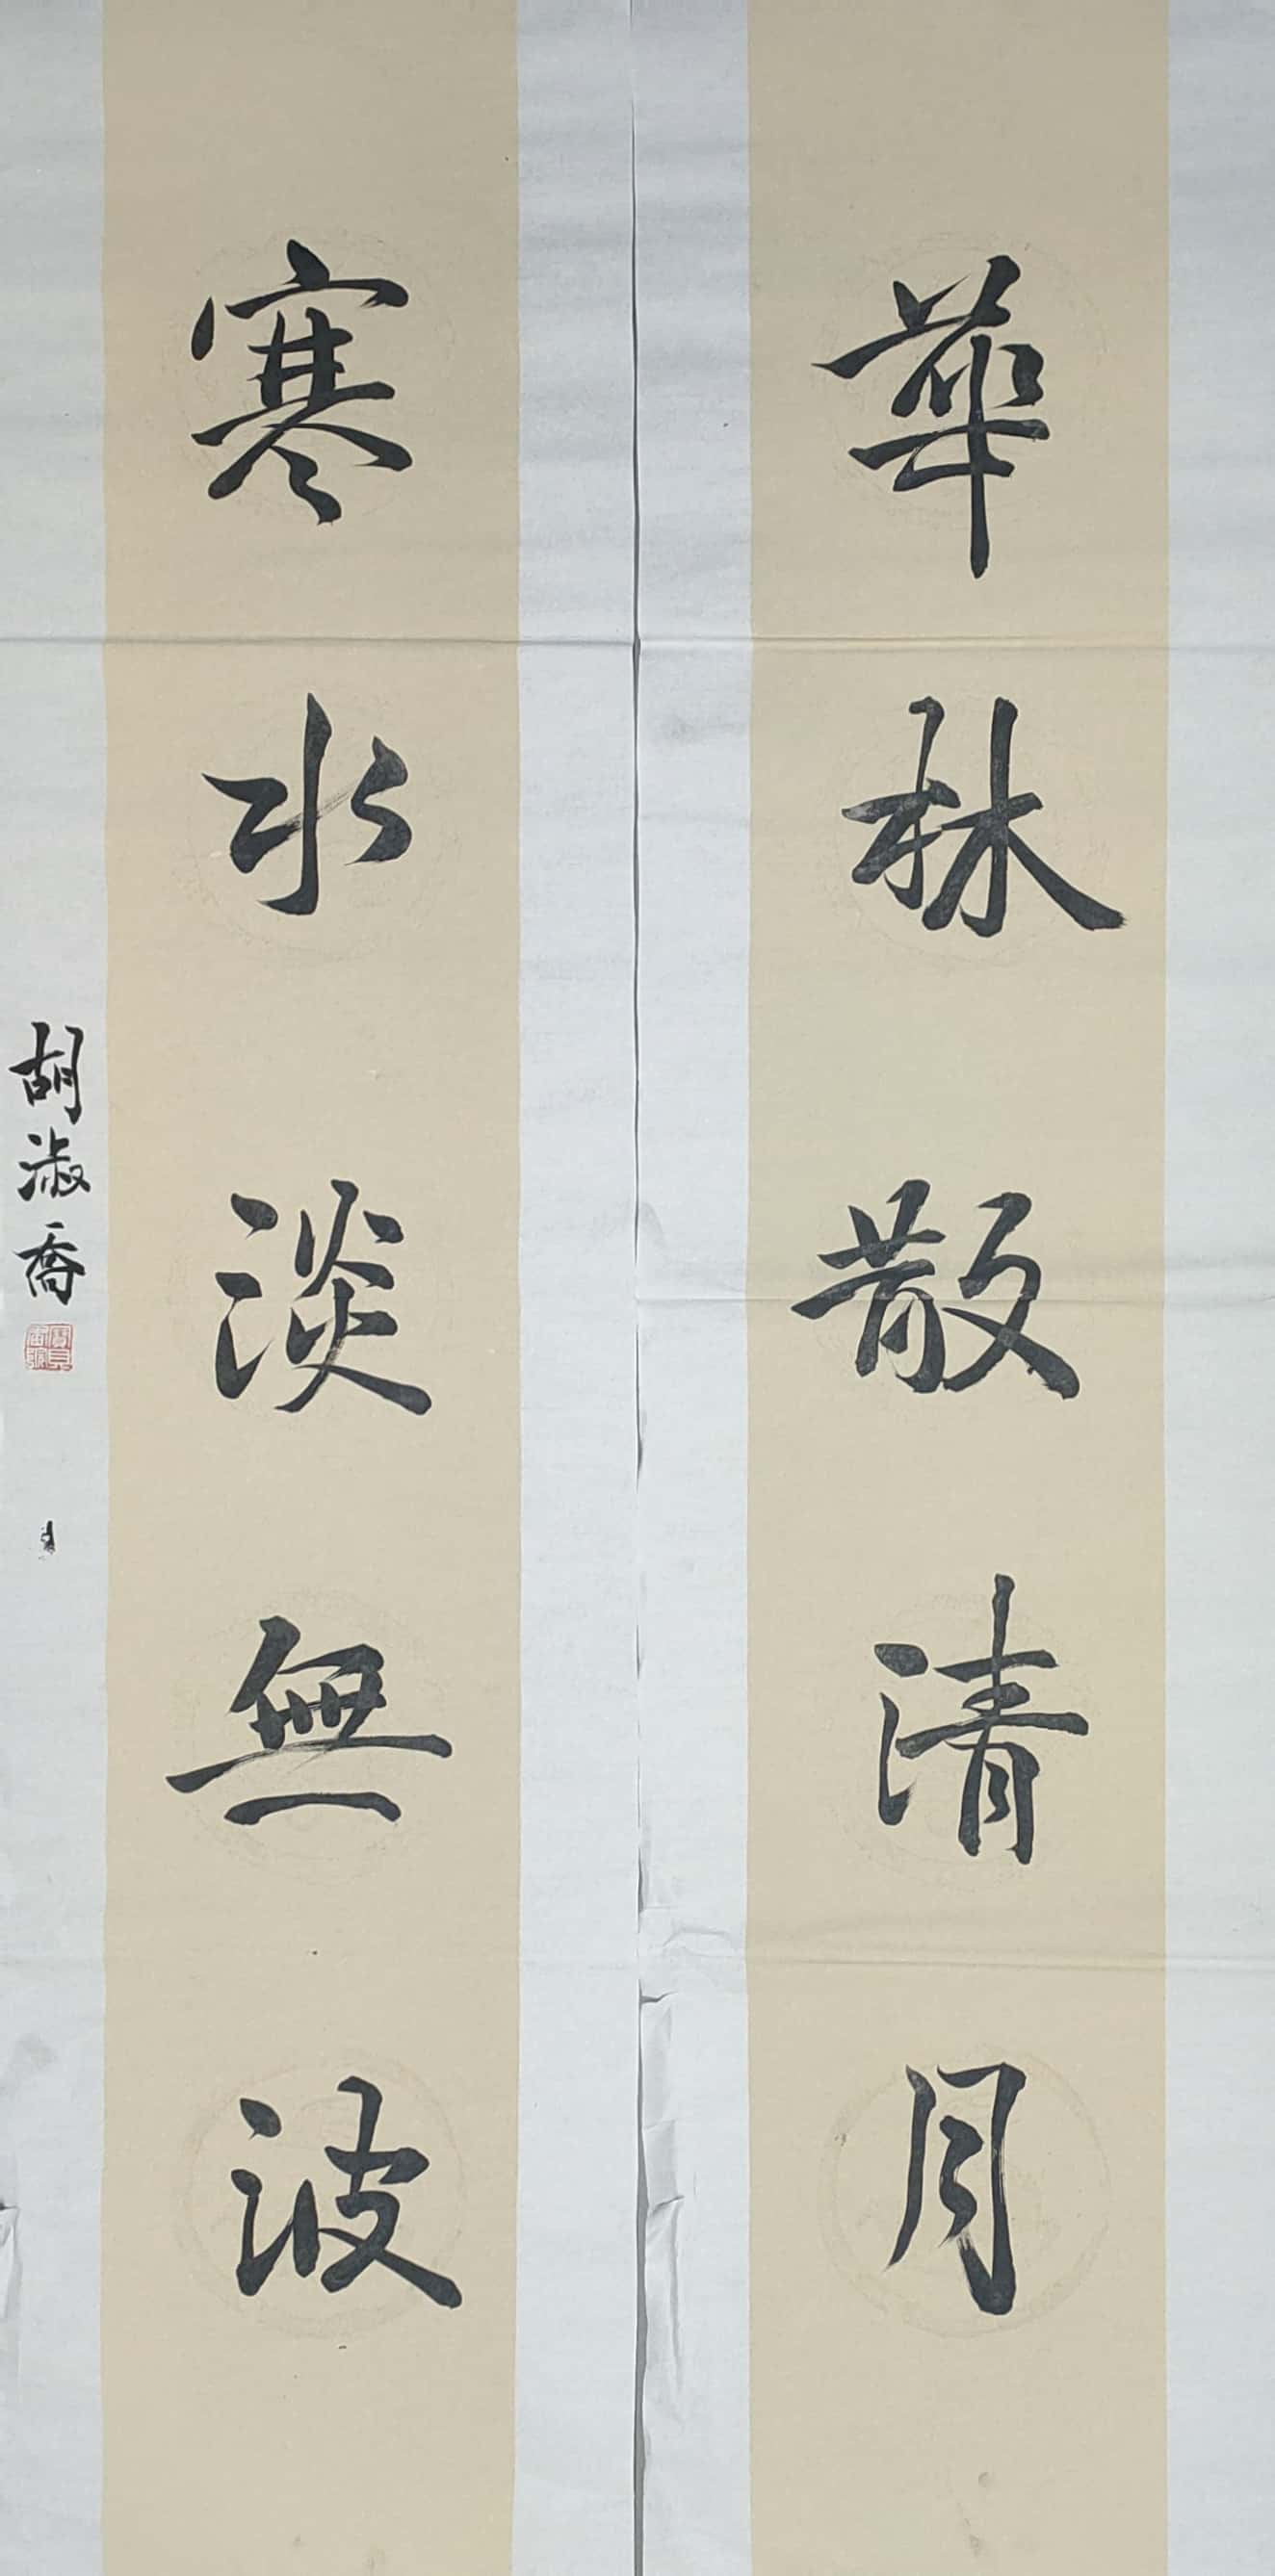 華林散清月
寒水淡無波
胡淑喬